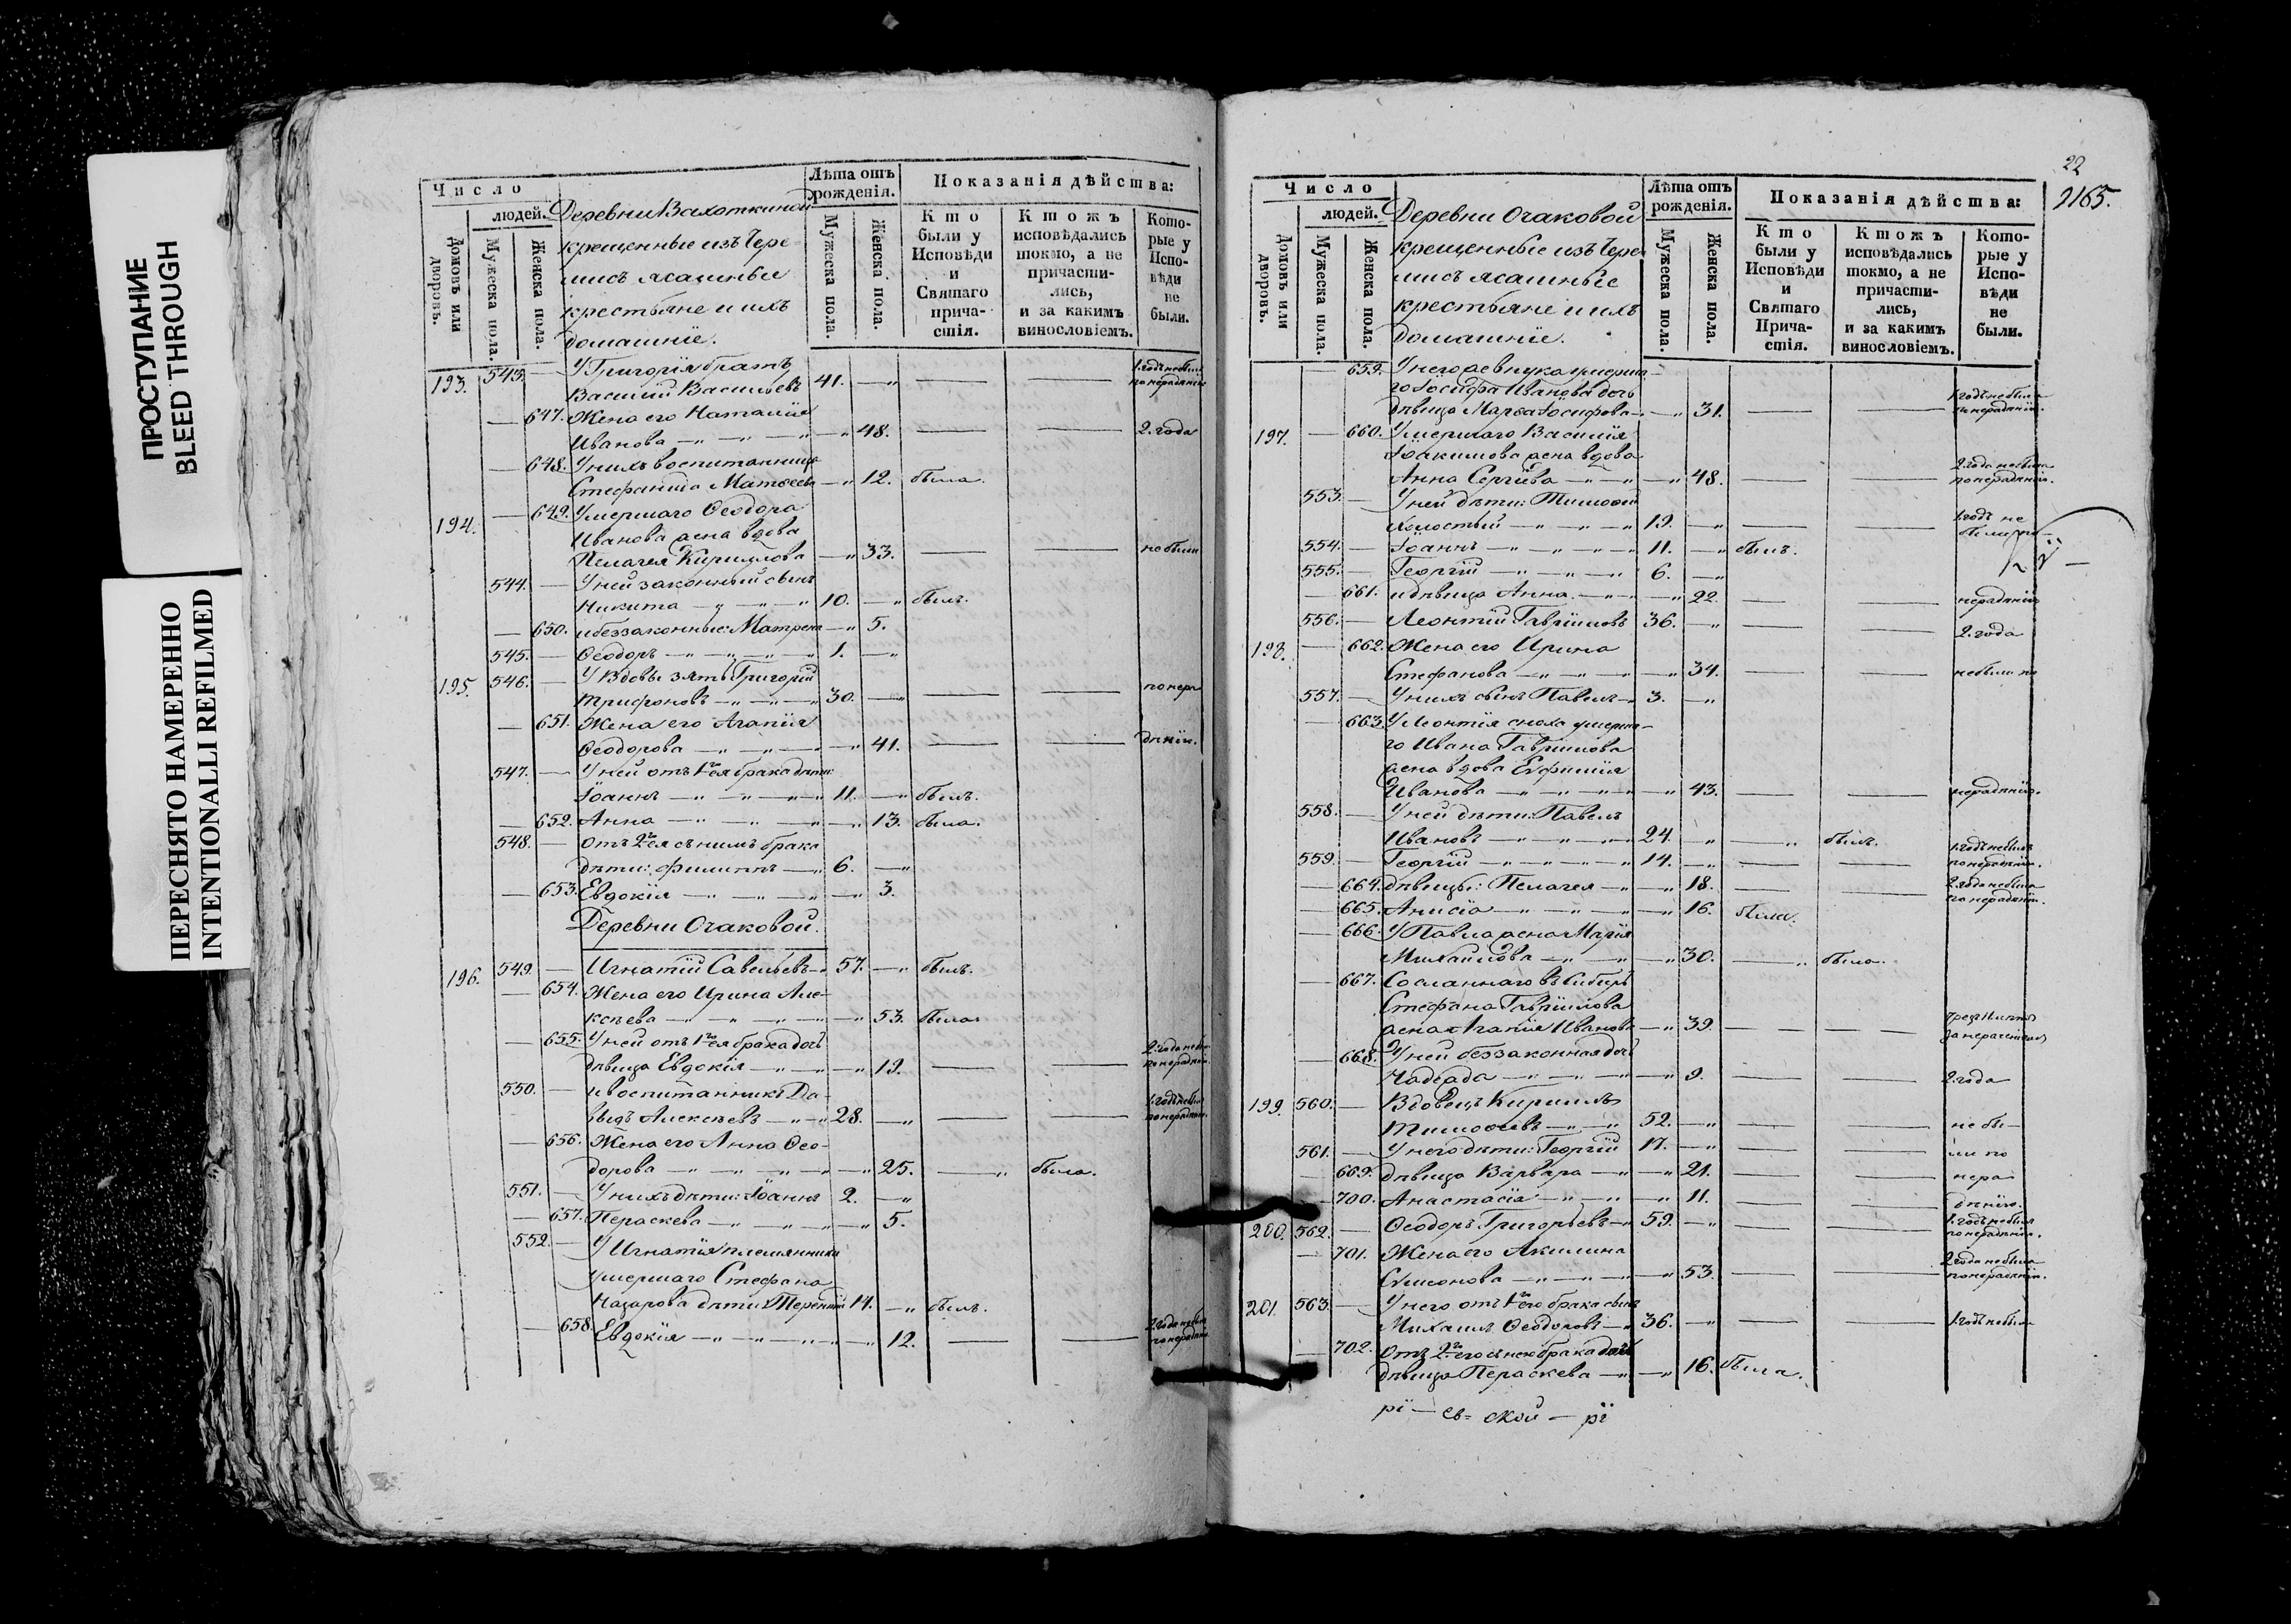 ПРОСТУПАНИЕ
BLEED THROUGH
ПЕРЕСНЯТО НАМЕРЕННО
INTENTIONALLI REFILMED
Число
людей.
Домовъ или дворовъ.
Мужеска пола.
Женска пола.
Деревни Вахоткиной
крещенные изъ Чере-
мисъ ясашные
крестьяне и ихъ
домашніе.
Лѣта отъ рожденія.
Мужеска пола.
Женска пола.
Показанія дѣйства:
Кто были у Исповѣди и Святаго причастія.
Ктожъ исповѣдались токмо, а не причастились, и за какимъ винословіемъ.
Которые у Исповѣди не были.
193. 543. — У Григорія братъ
Василій Васильевъ 41. — 1. годъ небылъ по нераденію
— 647. Жена его Наталія
Иванова — 48. — 2. года
— 648. У нихъ воспитанница
Стефанида Матѳеева — 12. была.
194. — 649. Умершаго Ѳеодора
Иванова жена вдова
Пелагея Кириллова — 33. — небыли
544. — У ней законный сынъ
Никита — 10. — былъ.
— 650. и беззаконные: Матрена — 5.
545. — Ѳеодоръ — 1. —
195. 546. — У вдовы зять Григорій
Трифоновъ — 30. — по нера
— 651. Жена его Агапія
Ѳеодорова — 41. — дѣнію.
547. — У ней отъ 1го ея брака дѣти:
Іоаннъ — 11. — былъ.
— 652. Анна — 13. была.
548. — отъ 2го ея съ нимъ брака
дѣти: Филиппъ — 6. —
— 653. Евдокія — 3.
Деревни Очаковой.
196. 549. — Игнатій Савельевъ 57. — былъ.
— 654. Жена его Ирина Але-
ксѣева — 53. была.
— 655. У ней отъ 1го ея брака дочь
дѣвица Евдокія — 19. — 2. года небыла по нерадѣнію.
550. — и воспитанникъ Да-
выдъ Алексѣевъ — 28. — 1. годъ небылъ по нерадѣнію.
— 656. Жена его Анна Ѳео-
дорова — 25. — была.
551. — У нихъ дѣти: Іоаннъ 2. —
— 657. Пераскева — 5.
552. — У Игнатія племянники
умершаго Стефана
Назарова дѣти: Терентій 14. — былъ.
— 658. Евдокія — 12. — 2. года небыла по нерадѣнію
22
2165.
Число
людей.
Домовъ или дворовъ.
Мужеска пола.
Женска пола.
Деревни Очаковой
крещенные изъ Чере-
мисъ ясашные
крестьяне и ихъ
домашніе.
Лѣта отъ рожденія.
Мужеска пола.
Женска пола.
Показанія дѣйства:
Кто были у Исповѣди и Святаго Причастія.
Ктожъ исповѣдались токмо, а не причастились, и за какимъ винословіемъ.
Которые у Исповѣди не были.
— 659. У него же внука умерша-
го Іосифа Иванова дочь
дѣвица Марѳа Іосифова — 31. — 1. годъ небыла по нерадѣнію.
197. — 660. Умершаго Василія
Іоакимова жена вдова
Анна Сергіева — 48. — 2. года небыла по нерадѣнію.
553. — У ней дѣти: Тимоѳей
холостый — 19. — 1. годъ не
554. — Іоаннъ — 11. — былъ.
555. — Георгій — 6. —
— 661. и дѣвица Анна — 22. — нерадѣнію
556. — Леонтій Гавріиловъ 36. — 2. года
198. — 662. Жена его Ирина
Стефанова — 34. — небыли по
557. — У нихъ сынъ Павелъ 3. —
— 663. У Леонтія сноха умерша-
го Ивана Гавріилова
жена вдова Евфимія
Иванова — 43. — нерадѣнію.
558. — У ней дѣти: Павелъ
Ивановъ — 24. — былъ.
559. — Георгій — 14. — 1. годъ небылъ по нерадѣнію.
— 664. дѣвицы: Пелагея — 18. — 2. года небыла по нерадѣнію.
— 665. Анисія — 16. была.
— 666. У Павла жена Марія
Михайлова — 30. — была.
— 667. Сосланнаго въ Сибирь
Стефана Гавріилова
жена Агапія Иванова — 39.
— 668. У ней беззаконная дочь
Надежда — 9. — 2. года
199. 560. — Вдовецъ Кириллъ
Тимоѳеевъ — 52. — не бы-
561. — У него дѣти: Георгій 17. — ли по
— 669. дѣвица Варвара — 21. — нера
— 700. Анастасіа — 11. — дѣнію.
200. 562. — Ѳеодоръ Григорьевъ 59. — 1. годъ небылъ по нерадѣнію.
— 701. Жена его Акилина
Симонова — 53. — 2. года небыла по нерадѣнію.
201. 563. — У него отъ 1го его брака сынъ
Михаилъ Ѳеодоровъ 36. — 1. годъ небылъ
— 702. отъ 2го его съ нею брака дочь
дѣвица Пераскева — 16. была.
рі — ев- ской — рі